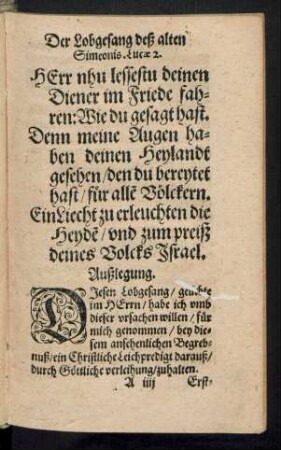 Der Lobgesang deß alten
Simeonis. Lucæ 2.
HErr nhu lessestu deinen
Diener im Friede fah-
ren: Wie du gesagt hast.
Denn meine Augen ha-
ben deinen Heylandt
gesehen / den du bereytet
hast / für allẽ Völckern.
Ein Liecht zu erleuchten die
Heydẽ / vnd zum preiß
deines Volcks Israel.
Außlegung.
DIesen Lobgesang / geliebte
im HErrn / habe ich vmb
dieser vrsachen willen / für
mich genommen / bey die-
sem ansehenlichen Begreb-
nuß / ein Christliche Leichpredigt darauß /
durch Göttliche verleihung / zuhalten.
A iiij Erst-